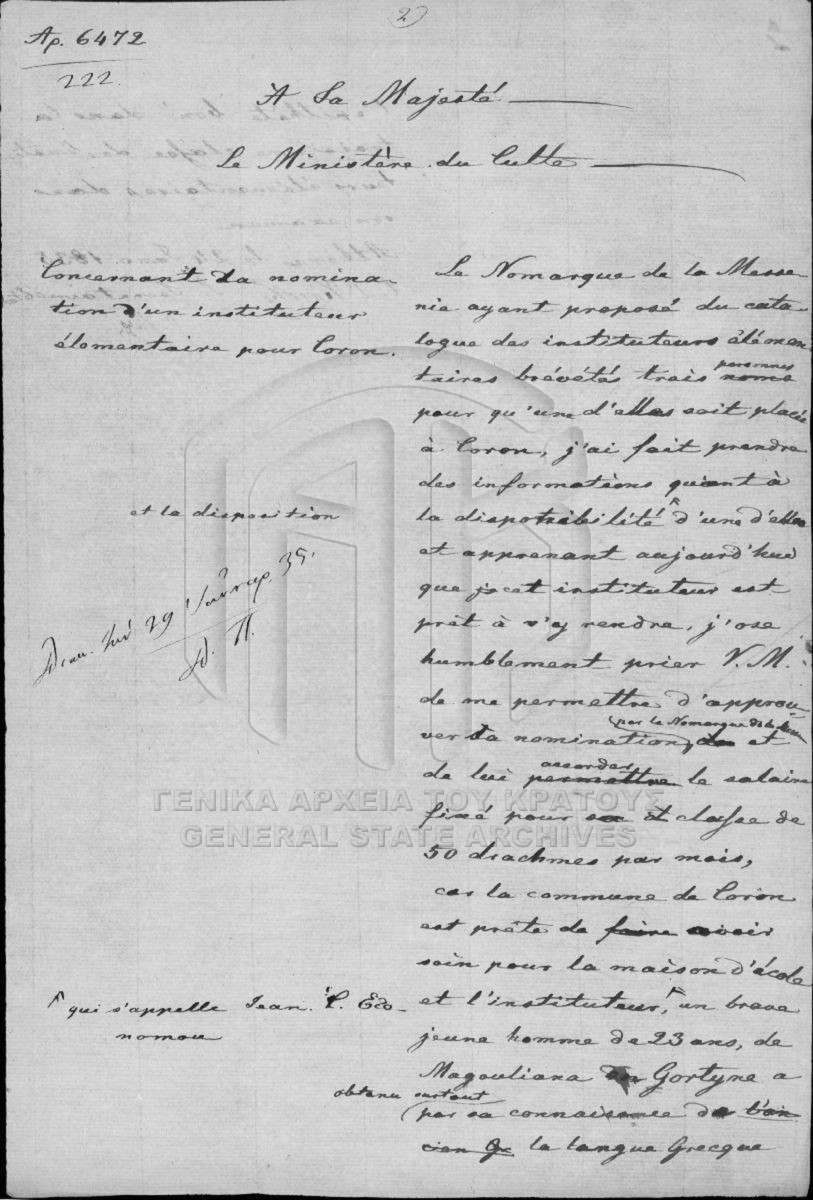 2
Αρ. 6472
222.
A Sa Majesté
Le Ministère du Culte
Concernant la nomina-
tion d'un instituteur
élémentaire pour Coron.
Le Nomarque de la Messe-
nie ayant proposé du cata-
logue des instituteurs élémen-
taires brévétés trois noms personnes
pour qu'une d'elles soit placée
à Coron, j'ai fait prendre
des informations quant à
et la disposition
la disponibilité ^ d'une d'elles
et apprenant aujourd'hui
que cet instituteur est
prêt à s'y rendre, j'ose
humblement prier V. M.
de me permettre d'approu-
par le Nomarque de la
ver la nomination, et
accorder
de lui permettre le salaire
fixé pour sa classe de
50 drachmes par mois,
car la commune de Coron
est prête de faire avoir
soin pour la maison d'école
et l'instituteur, ^ un brave
^ qui s'appelle Jean. C. Eco-
nomou
jeune homme de 23 ans, de
Magouliana Gortyne a
obtenu surtout
par sa connaissance de l'an-
cien Gr la langue Grecque
29 Ἰανουαρ. 35.
ΓΕΝΙΚΑ ΑΡΧΕΙΑ ΤΟΥ ΚΡΑΤΟΥΣ
GENERAL STATE ARCHIVES